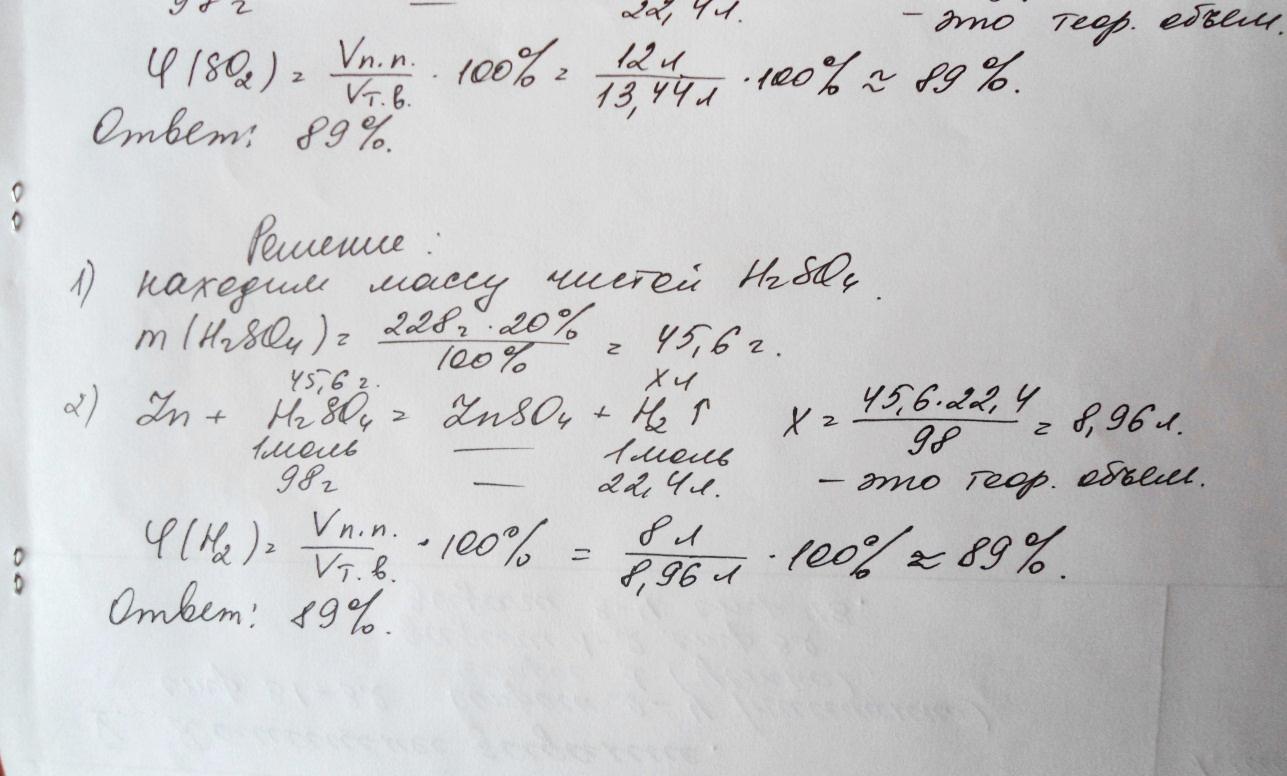 98 г — 22,4 л. - это теор. объем.
φ(SO₂) = Vп.п. / Vт.в. · 100% = 12 л / 13,44 л · 100% ≈ 89%.
Ответ: 89%.
Решение:
1) находим массу чистой H₂SO₄.
m(H₂SO₄) = 228г · 20% / 100% = 45,6 г.
45,6 г. X л
2) Zn + H₂SO₄ = ZnSO₄ + H₂ ↑ X = 45,6 · 22,4 / 98 = 8,96 л.
1моль — 1моль
98г — 22,4л. - это теор. объем.
φ(H₂) = Vп.п. / Vт.в. · 100% = 8 л / 8,96 л · 100% ≈ 89%.
Ответ: 89%.